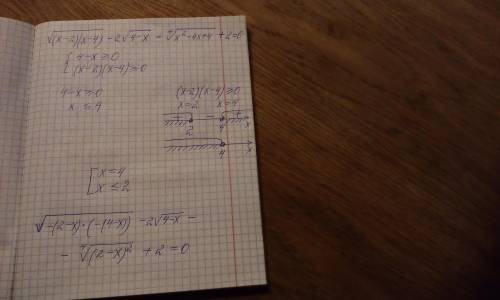 √(x-2)(x-4) - 2√4-x - ∜x²-4x+4 + 2 = 0
{ 4-x ≥ 0
(x-2)(x-4) ≥ 0
4-x ≥ 0 (x-2)(x-4) ≥ 0
x ≤ 4 x=2 x=4
+ - +
2 4 x
4 x
[ x=4
x ≤ 2
√-(2-x)·(-(4-x)) - 2√4-x -
- ∜(2-x)² + 2 = 0